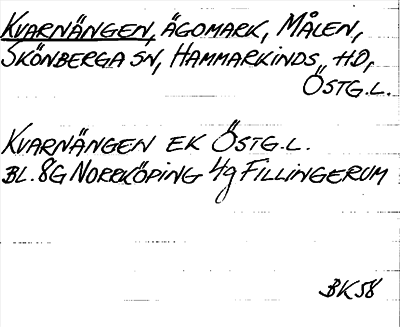 KVARNÄNGEN, ÄGOMARK, MÅLEN,
SKÖNBERGA SN, HAMMARKINDS HD,
ÖSTG.L.
KVARNÄNGEN EK ÖSTG.L.
BL. 8G NORRKÖPING 4g FILLINGERUM
BK58